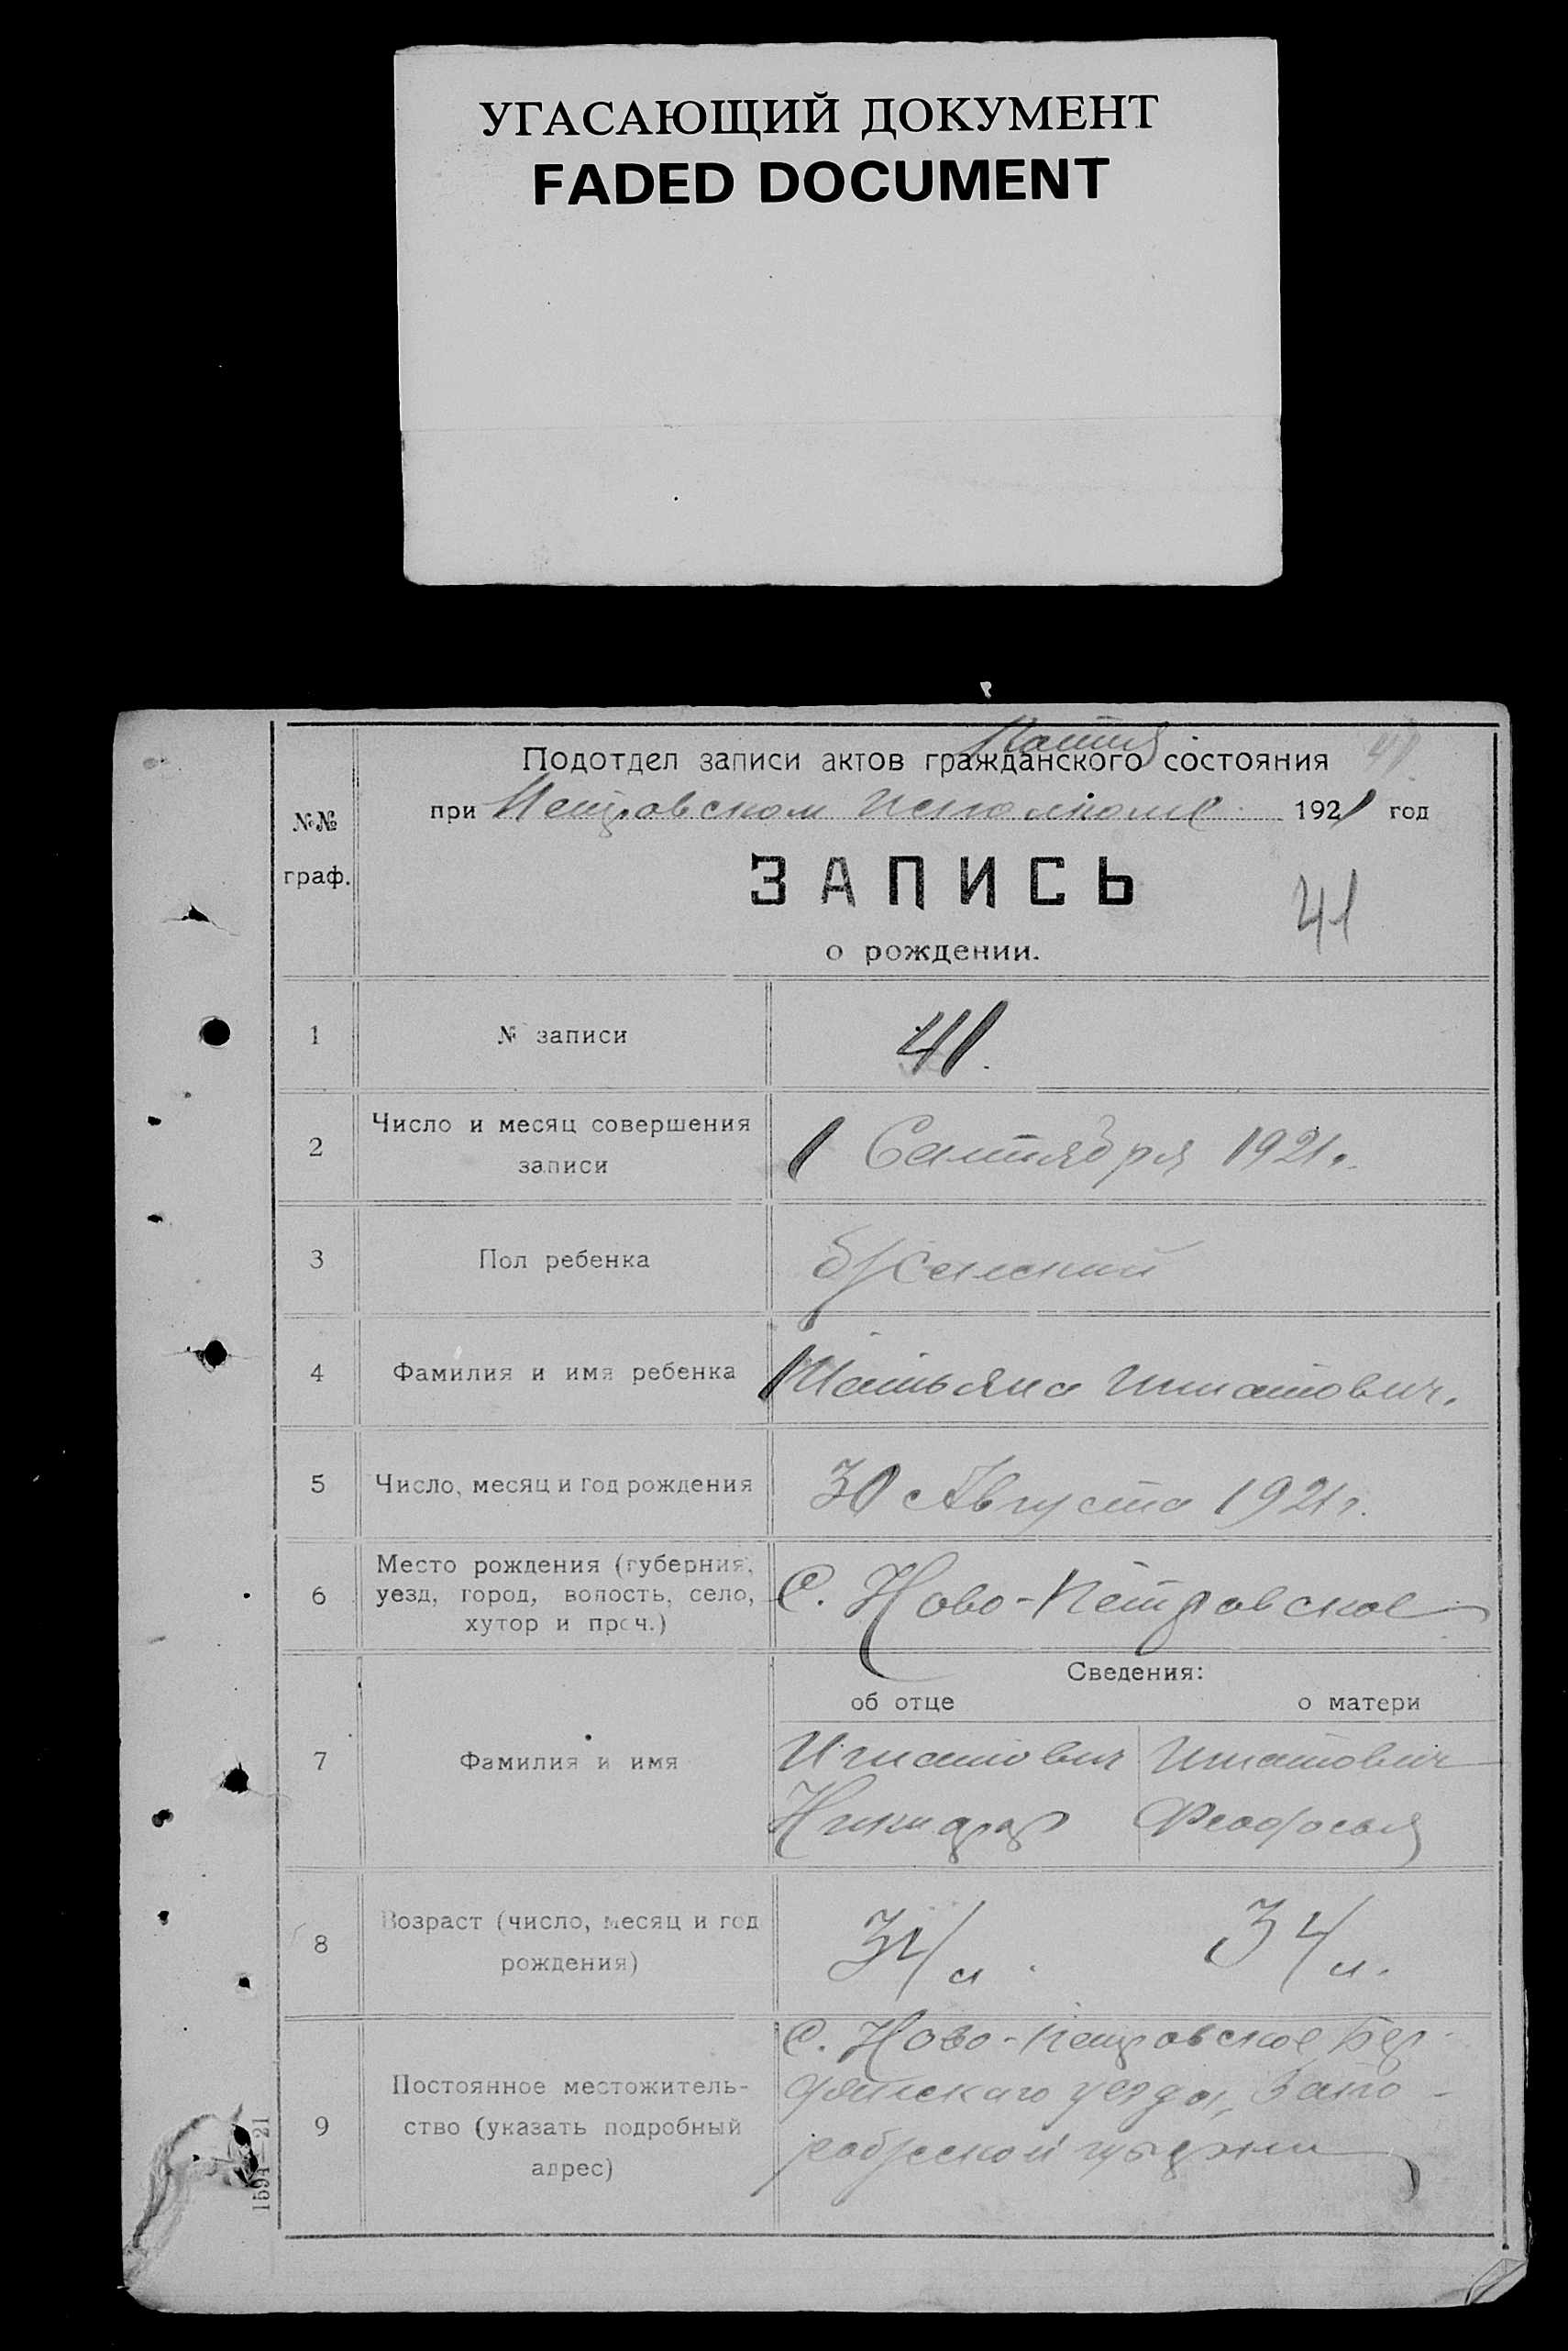 УГАСАЮЩИЙ ДОКУМЕНТ
FADED DOCUMENT
41
Подотдел записи актов гражданского состояния
при Петровском Исполкоме 1921 год
№№
граф.
ЗАПИСЬ
41
о рождении.
1 № записи 41.
2 Число и месяц совершения
записи
1 Сентября 1921 г.
3 Пол ребенка Женский
4 Фамилия и имя ребенка Татьяна Игнатович.
5 Число, месяц и год рождения 30 Августа 1921 г.
6 Место рождения (губерния,
уезд, город, волость, село,
хутор и проч.)
С. Ново-Петровское
Сведения:
об отце о матери
7 Фамилия и имя
Игнатович Игнатович
Никандр Феодосья
8 Возраст (число, месяц и год
рождения)
34 л. 34 л.
9 Постоянное местожитель-
ство (указать подробный
адрес)
С. Ново-Петровское Бер-
дянскаго уезда, Запо-
рожской губернии
1594—21